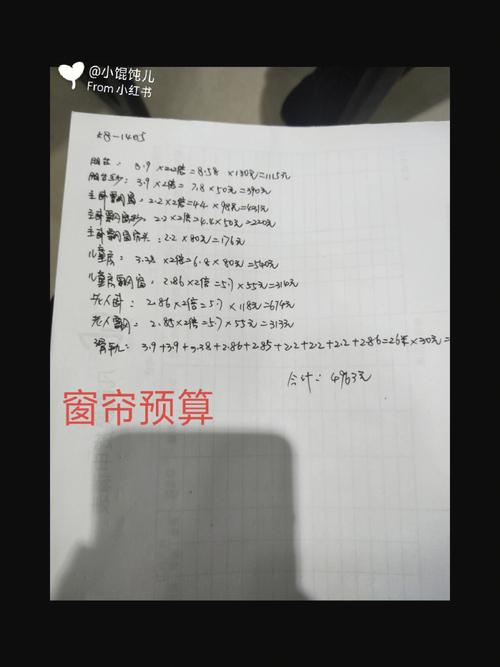 @小馄饨儿
From 小红书
28-1405
3.9×2.2倍=8.5米×130元=1115元
3.9×2倍=7.8×50元=390元
主卧飘窗:2.2×2倍=4.4×98元=431元
主卧飘窗纱:2.2×2倍=4.4×50元=220元
主卧飘窗:2.2×80元=176元
儿童房:3.38×2倍=6.8×80元=540元
儿童房飘窗:2.86×2倍=5.7×55元=314元
老人卧:2.86×2倍=5.7×118元=674元
老人飘:2.85×2倍=5.7×55元=313元
滑轨:3.9+3.9+3.38+2.86+2.85+2.2+2.2+2.2+2.86=26米×30元=
合计:4963元
窗帘预算